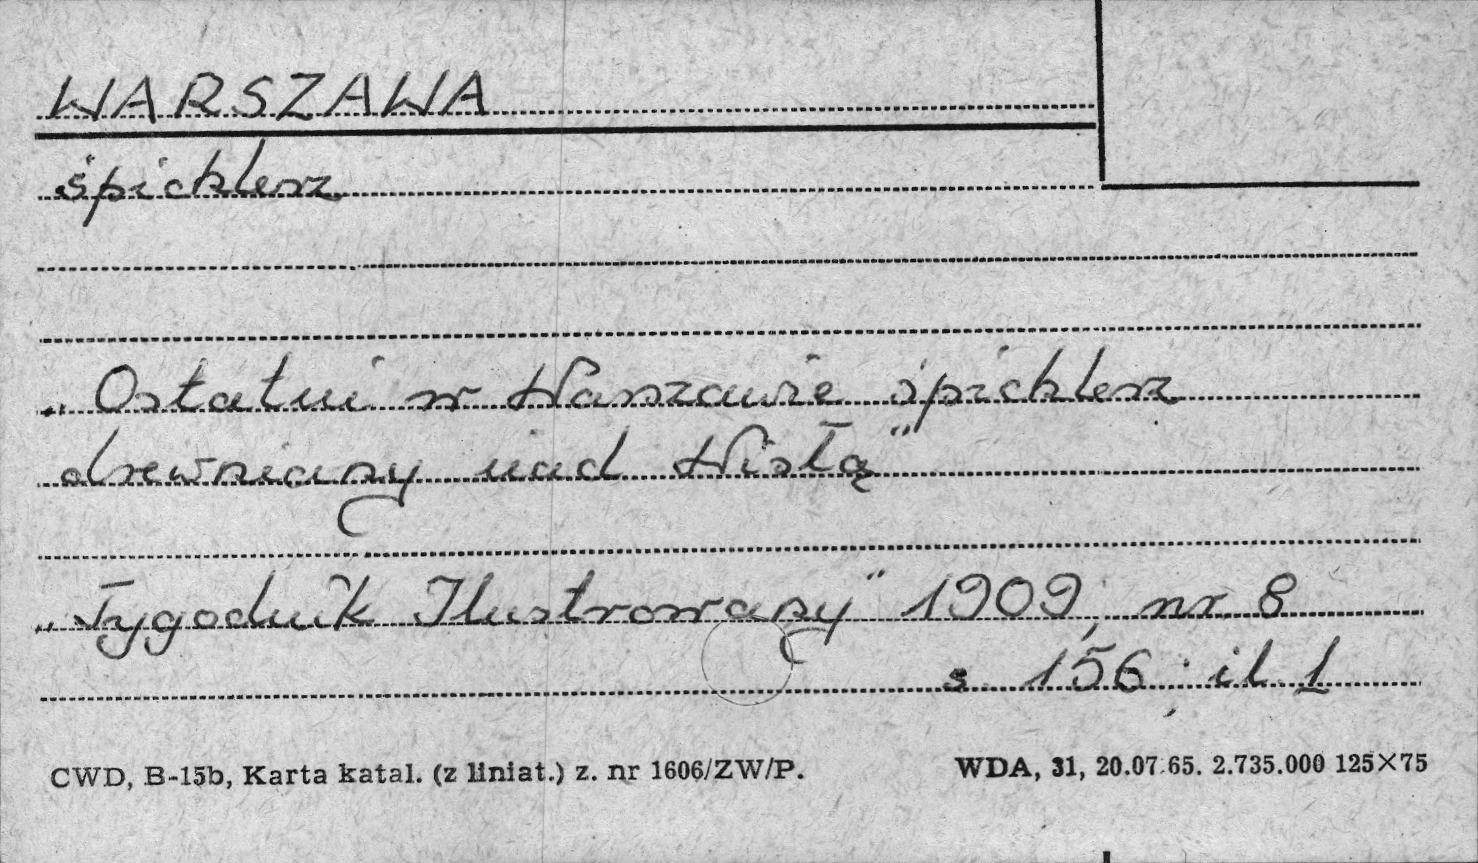 WARSZAWA
śpichlerz
„Ostatni w Warszawie śpichlerz
drewniany nad Wisłą"
„Tygodnik Ilustrowany" 1909, nr 8
s 156; il 1
CWD, B-15b, Karta katal. (z liniat.) z. nr 1606/ZW/P.
WDA, 31, 20.07.65. 2.735.000 125×75